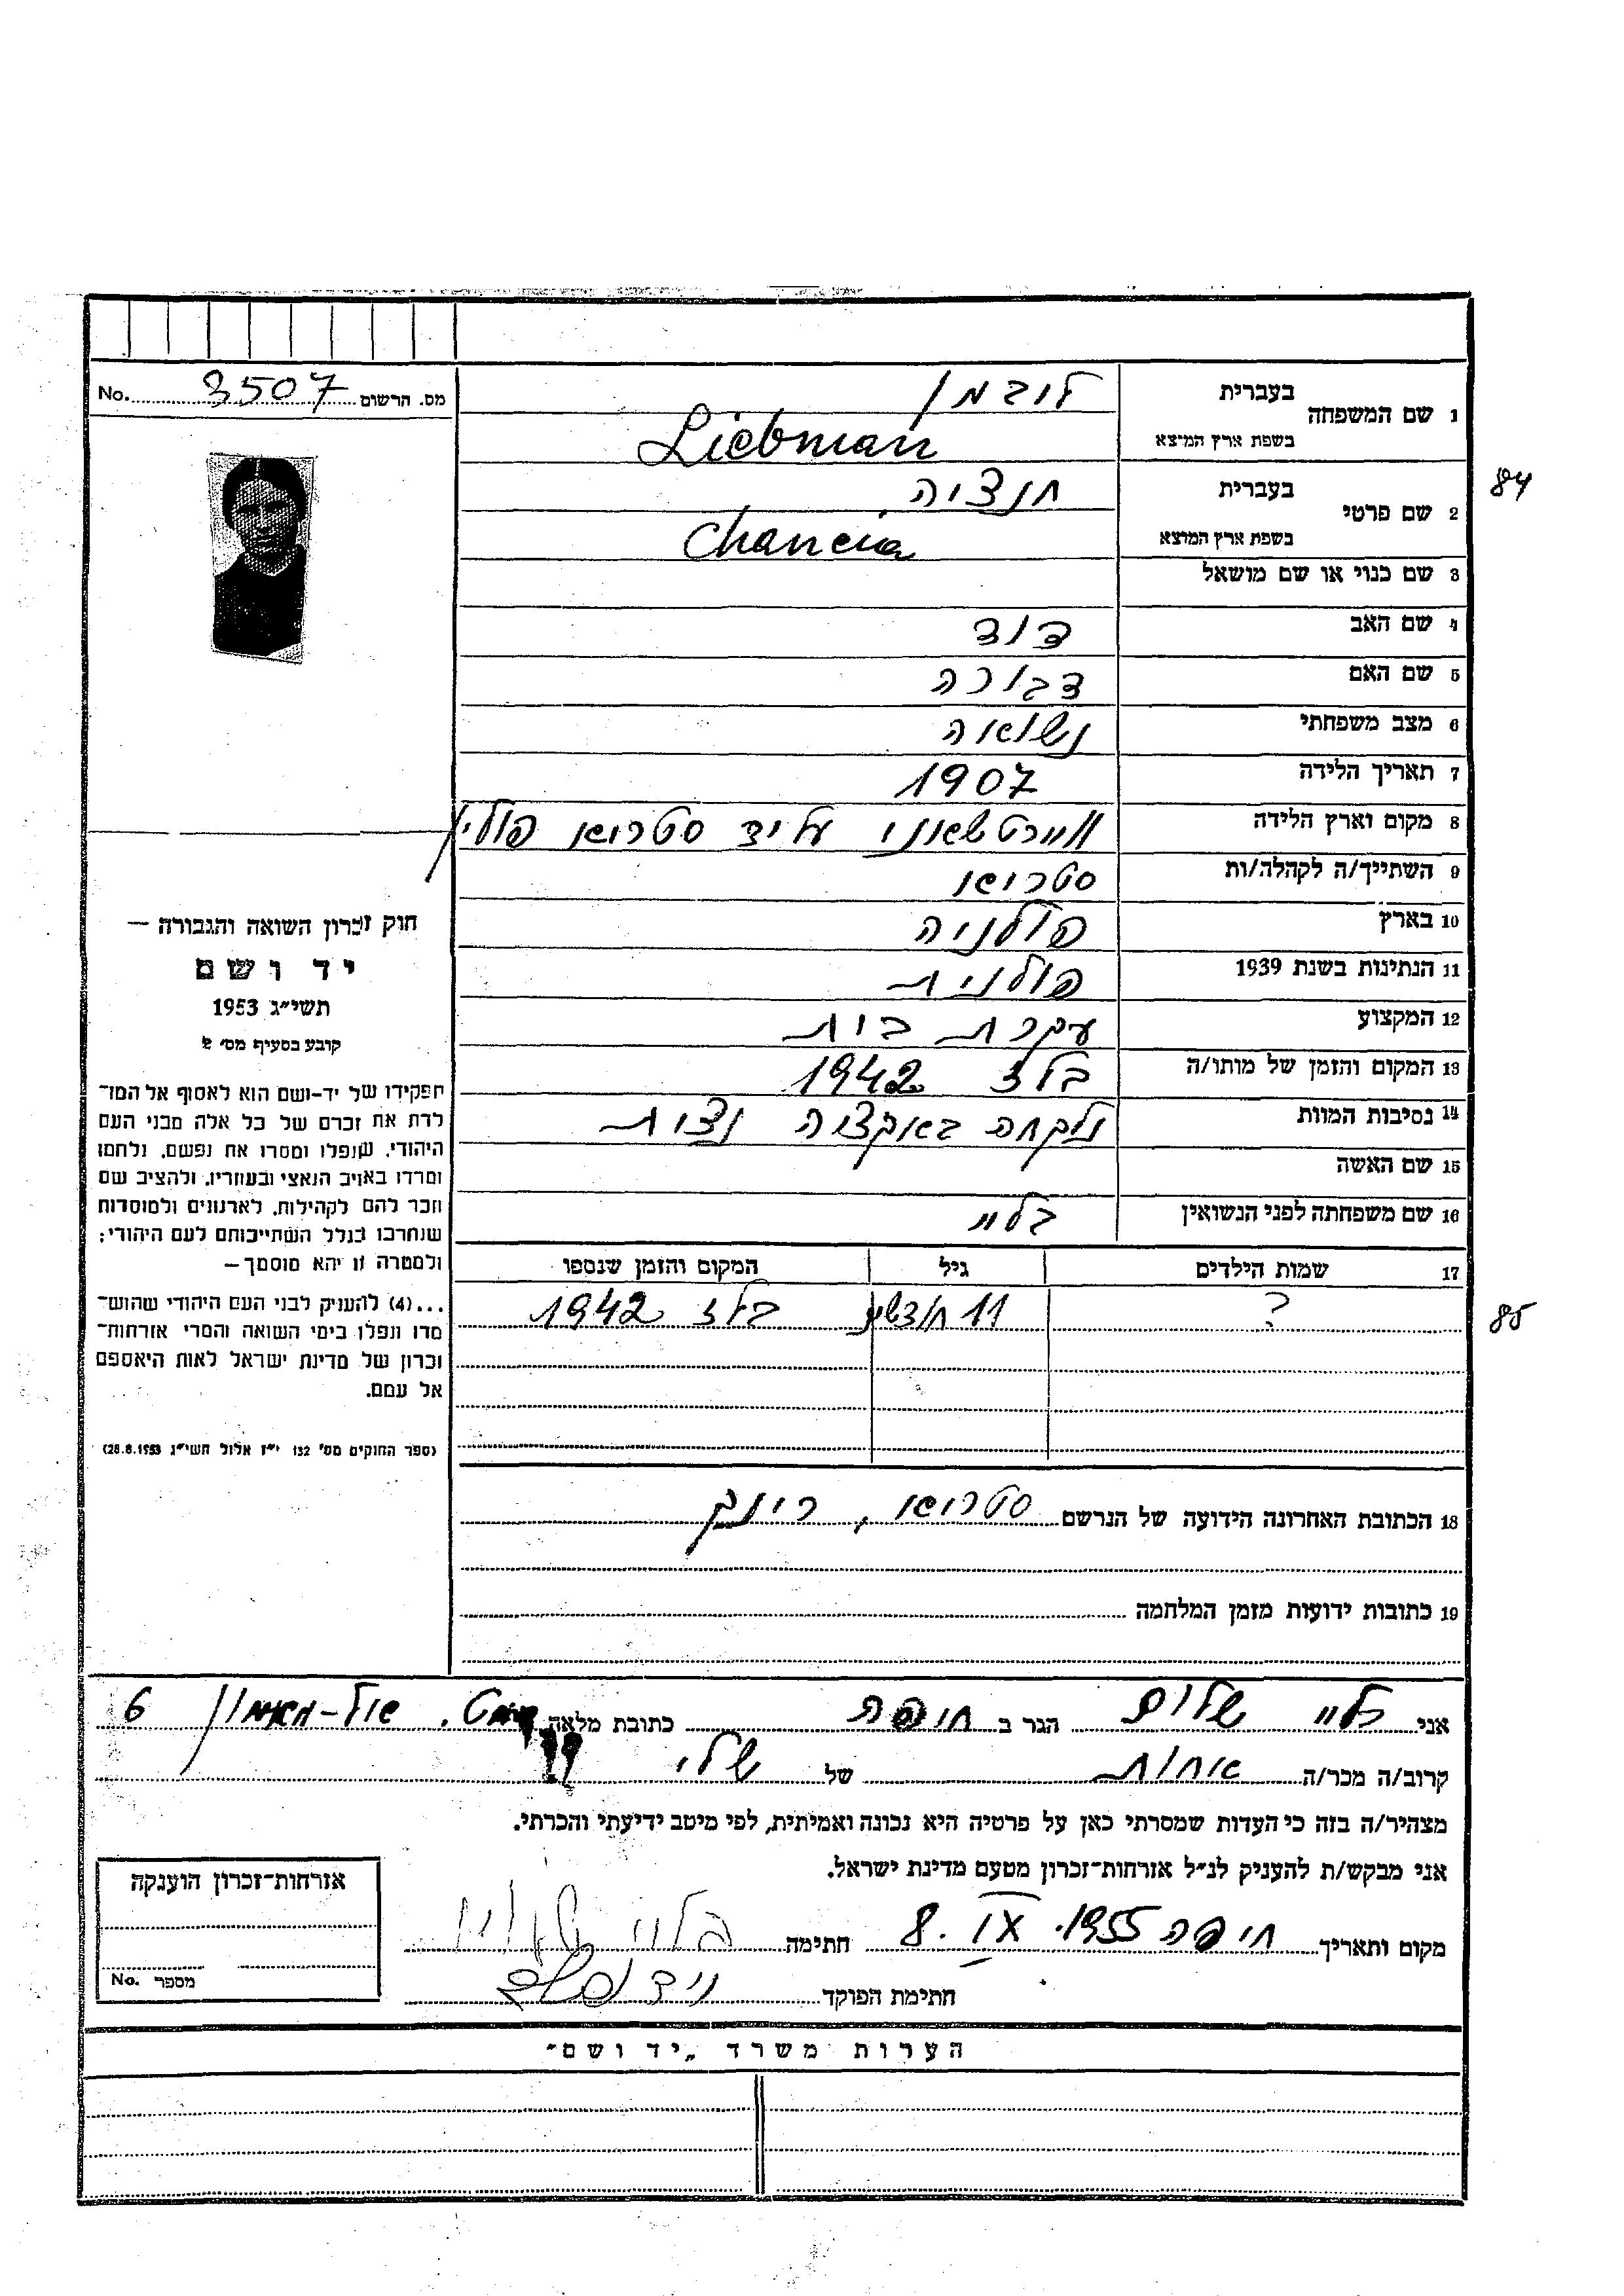 No. 3507 מס. הרשום
1 שם המשפחה בעברית ליבמן
בשפת ארץ המוצא Liebman
84
2 שם פרטי בעברית חנציה
בשפת ארץ המוצא Chancia
3 שם כנוי או שם מושאל
4 שם האב דוד
5 שם האם דבורה
6 מצב משפחתי נשואה
7 תאריך הלידה 1907
8 מקום וארץ הלידה על יד סטריאו פולין
9 השתייך/ה לקהלה/ות סטריאו
10 בארץ פולניה
11 הנתינות בשנת 1939 פולנית
12 המקצוע עקרת בית
13 המקום והזמן של מותו/ה בלז 1942
14 נסיבות המוות נלקחה באקציה נצית
15 שם האשה
16 שם משפחתה לפני הנשואין בלוי
17 שמות הילדים גיל המקום והזמן שנספו
? 11 חודשים בלז 1942
85
18 הכתובת האחרונה הידועה של הנרשם סטריאו, רינק
19 כתובות ידועות מזמן המלחמה
חוק זכרון השואה והגבורה –
יד ושם
תשי"ג 1953
קובע בסעיף מס' 2
תפקידו של יד-ושם הוא לאסוף אל המו־
לדת את זכרם של כל אלה מבני העם
היהודי, שנפלו ומסרו את נפשם, נלחמו
ומרדו באויב הנאצי ובעוזריו, ולהציב שם
וזכר להם לקהילות, לארגונים ולמוסדות
שנחרבו בגלל השתייכותם לעם היהודי;
ולמטרה זו יהא מוסמך –
...(4) להעניק לבני העם היהודי שהוש־
מדו ונפלו בימי השואה והמרי אזרחות־
זכרון של מדינת ישראל לאות היאספם
אל עמם.
(ספר החוקים מס' 132 י"ז אלול תשי"ג 28.8.1953)
אני בלוי שלום הגר ב חיפה כתובת מלאה 6
קרוב/ה מכר/ה אחות של שלי
מצהיר/ה בזה כי העדות שמסרתי כאן על פרטיה היא נכונה ואמיתית, לפי מיטב ידיעתי והכרתי.
אני מבקש/ת להעניק לנ"ל אזרחות־זכרון מטעם מדינת ישראל.
מקום ותאריך חיפה 8. IX .1955 חתימה בלוי שלום
חתימת הפוקד
אזרחות־זכרון הוענקה
No. מספר
הערות משרד „יד ושם"